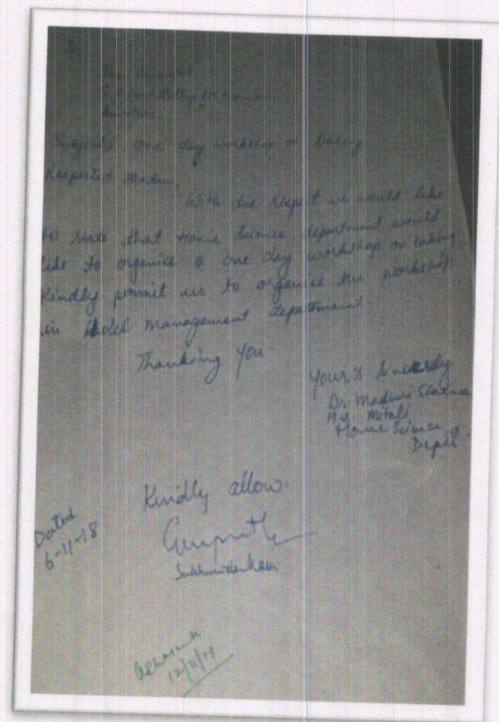 To
The
College for Women
Subject: One day workshop on baking
Respected Madam,
With due respect we would like
to state that Home Science department would
like to organise a one day workshop on baking
Kindly permit us to organise the workshop
in Hotel Management department.
Thanking You.
Your's Sincerely
Dr. Madhuri Sharma
Ms. Mitali
Home Science
Deptt.
Kindly allow.
Dated
6-11-18